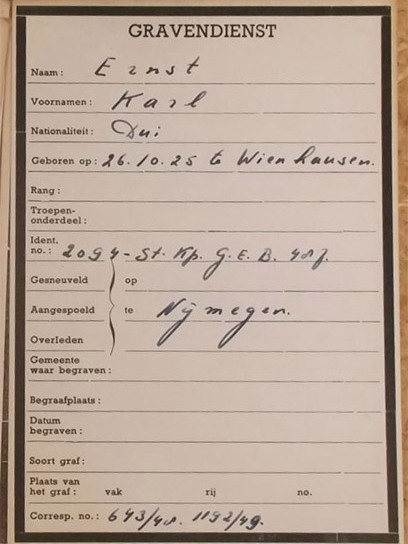 GRAVENDIENST
Naam: Ernst
Voornamen: Karl
Nationaliteit: Dui
Geboren op: 26.10.25 te Wienhausen.
Rang:
Troepen-
onderdeel:
Ident.
no.: 2094 - St. Kp. G.E.B. 487.
Gesneuveld op
Aangespoeld te Nijmegen.
Overleden
Gemeente
waar begraven:
Begraafplaats:
Datum
begraven:
Soort graf:
Plaats van
het graf: vak rij no.
Corresp. no.: 643/48. 1192/49.